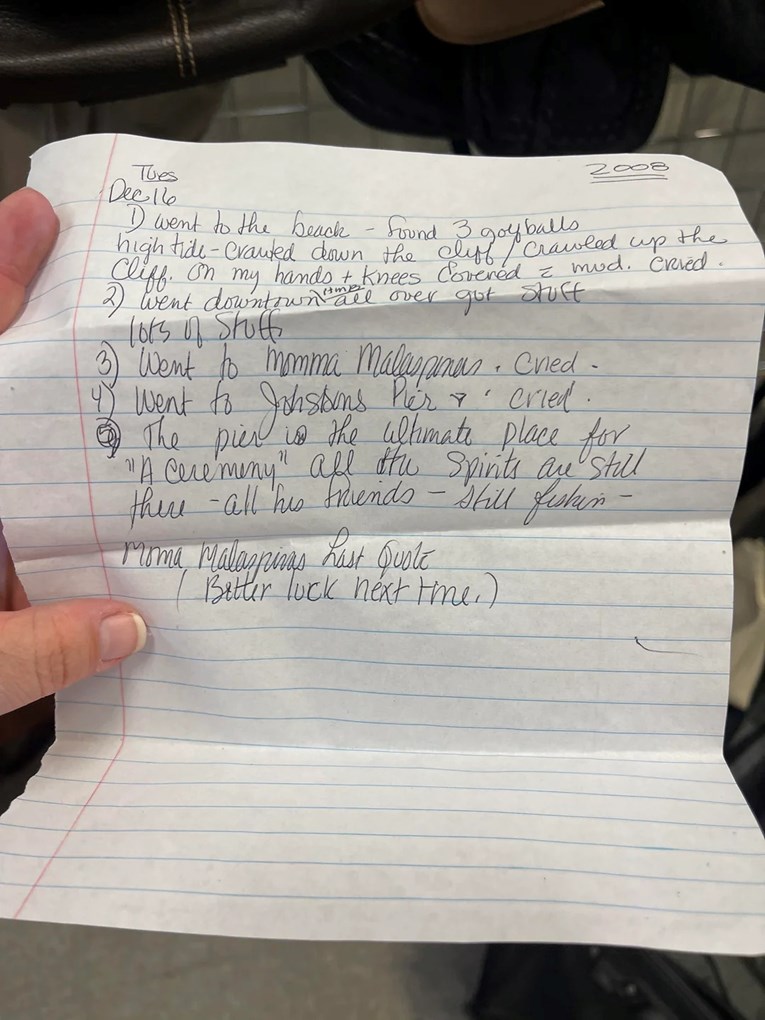 Tues 2008
Dec 16
1) went to the beach - found 3 golfballs
high tide - crawled down the cliff / crawled up the
Cliff. On my hands + Knees Covered c̄ mud. Cried.
2) Went downtown all over got Stuff
lots of Stuff
3) Went to Momma Malaspinas. Cried -
4) Went to Johstons Pier & cried.
5) The pier is the ultimate place for
"A ceremony" all the Spirits are Still
there - all his friends - Still fishin -
Moma Malaspinas Last Quote
( Better luck next time.)